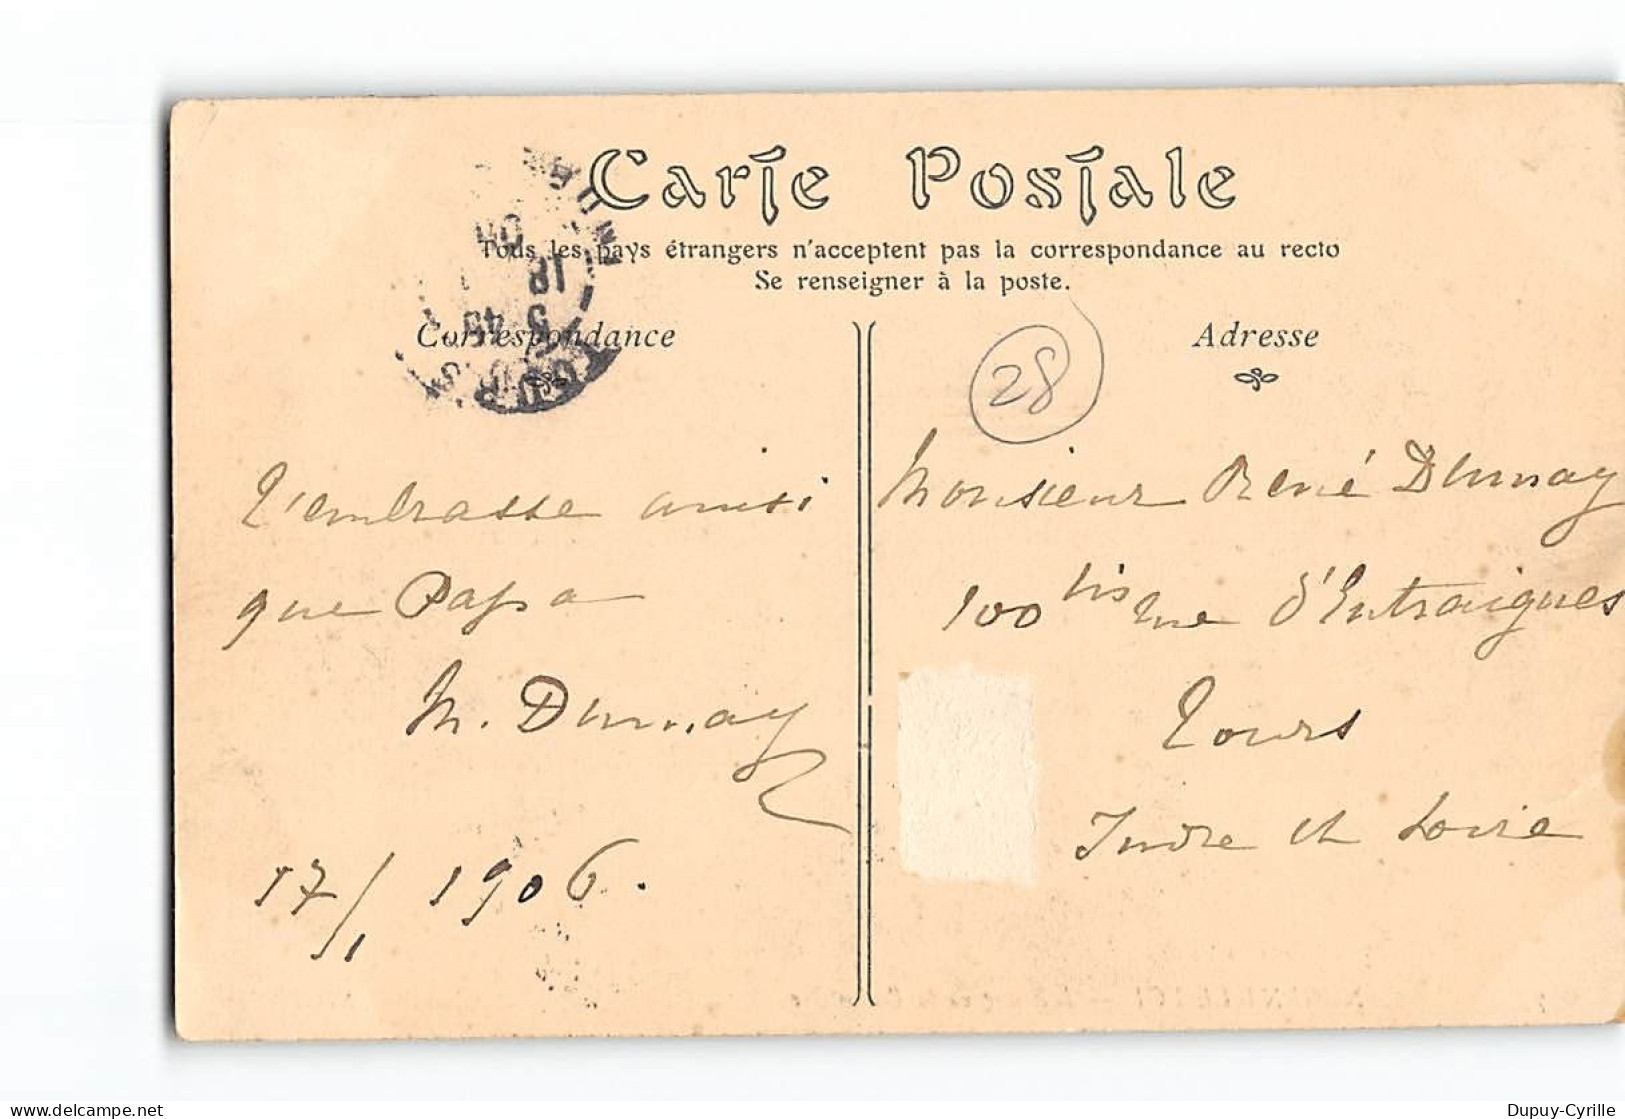 Carte Postale
Tous les pays étrangers n'acceptent pas la correspondance au recto
Se renseigner à la poste.
Correspondance
Adresse
28
18
5 45
T'embrasse ainsi
que Papa
M. Dunnay
17/1 1906.
Monsieur René Dunnay
100 bis rue d'Entraigues
Tours
Indre et Loire
Dupuy-Cyrille